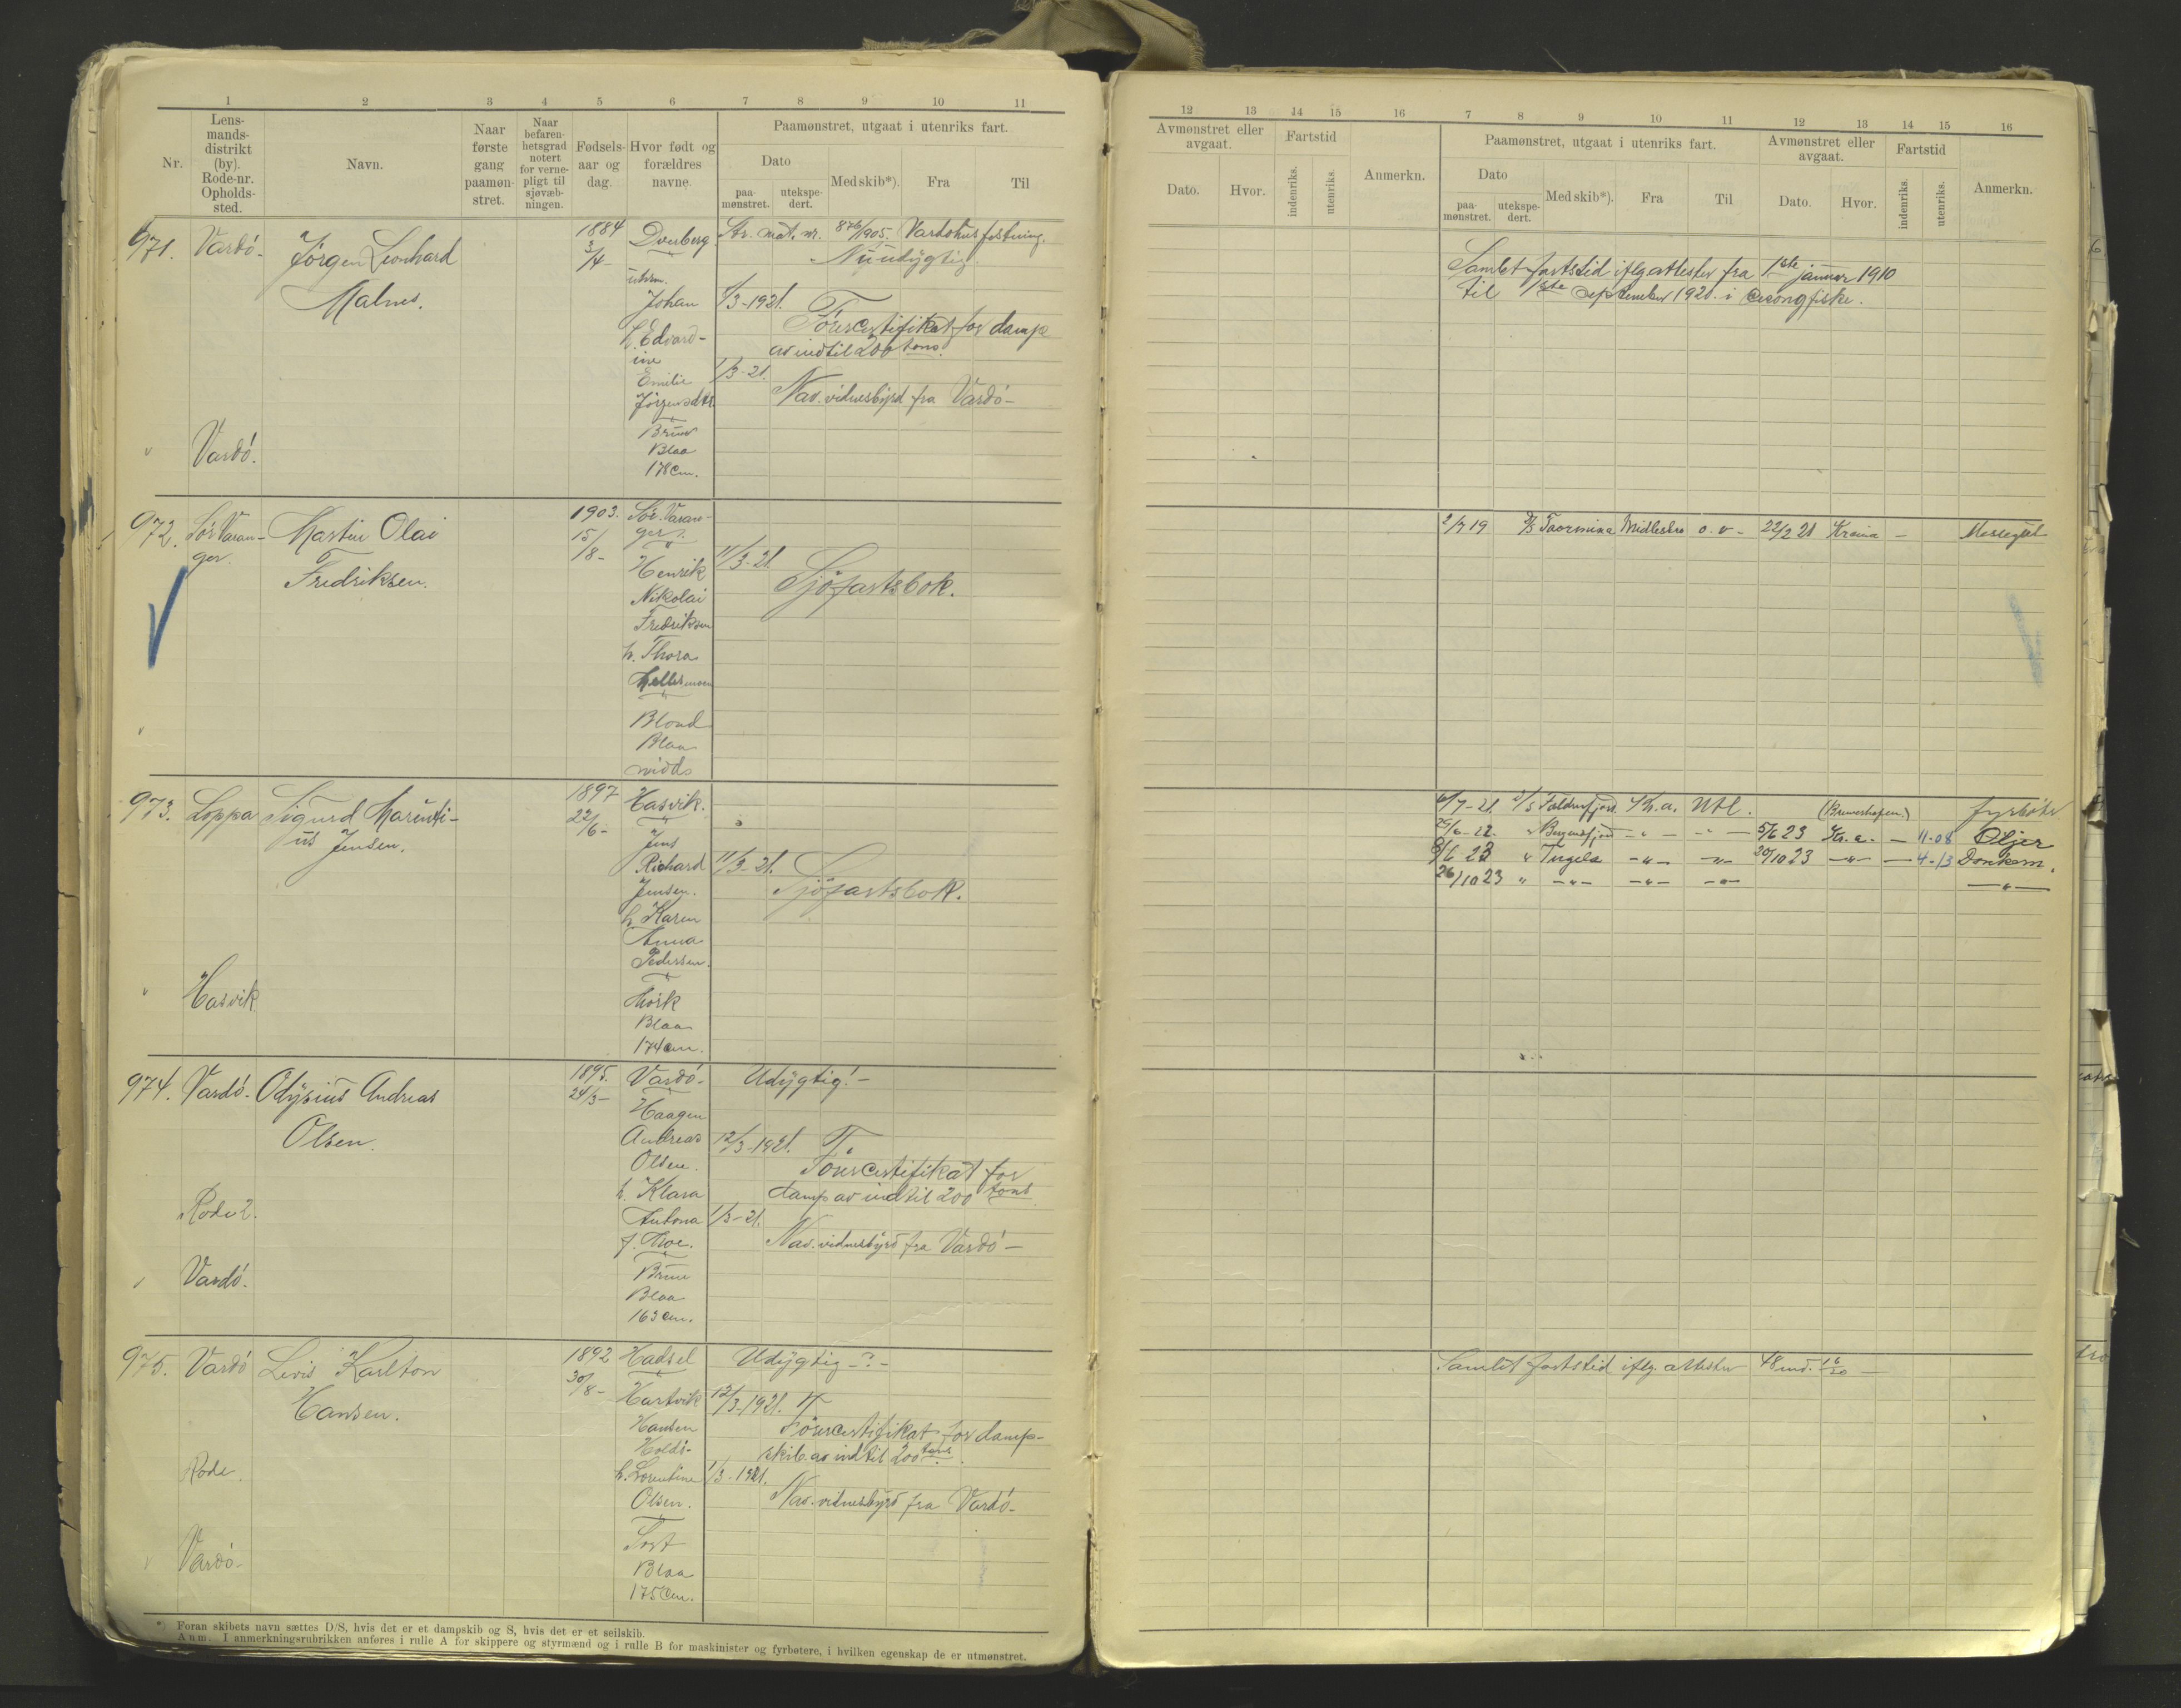 1 2 3 4 5 6 7 8 9 10 11
Nr.
Lens-
mands-
distrikt
(by).
Rode-nr.
Opholds-
sted.
Navn.
Naar
første
gang
paamøn-
stret.
Naar
befaren-
hetsgrad
notert
for verne-
pligt til
sjøvæb-
ningen.
Fødsels-
aar og
dag.
Hvor født og
forældres
navne.
Paamønstret, utgaat i utenriks fart.
Dato
paa-
mønstret.
utekspe-
dert.
Med skib*).
Fra
Til
971. Vardö-
Jörgen Leonhard
Malnes.
1884
3/4-
Dverberg
Johan
h. Edvard-
ine
Emilie
Jörgensdtr.
Brun
Blaa
178 cm.
Str. mat. nr. 876/1905. Vardöhus festning.
Nü udygtig.
1/3-1921.
Förercertifikat for damp
av indtil 200 tons.
1/3-21.
Nav. vidnesbyrd fra Vardö-
Vardö.
972. Sör Varan-
ger.
Martin Olai
Fredriksen.
1903.
15/8-
Sör-Varan-
ger.
Henrik
Nikolai
Fredriksen
h. Thora
Blond
Blaa
midds
11/3-21.
Sjöfartsbok.
973. Loppa
Sigurd Marenti-
us Jensen.
1897
22/6-
Hasvik.
Jens
Richard
Jensen.
h. Karen
Anna
Pedersen.
Mörk
Blaa
174 cm.
11/3-21.
Sjöfartsbok.
Hasvik
974. Vardö-
Odysius Andreas
Olsen.
1895.
24/3-
Vardö-
Haagen
Andreas
Olsen.
h. Klara
Antona
f. Moe.
Brun
Blaa
163 cm.
Udygtig!-
12/3-1921.
Förercertifikat for
damp av indtil 200 tons
1/3-21.
Nav. vidnesbyrd fra Vardö-
Rode 2.
Vardö.
975. Vardö
Levis Karlton
Hansen.
1892
30/8-
Hadsel
Hartvik
Hansen
Holdö-
h. Lorentine
Olsen.
Sort
Blaa
175 cm.
Udygtig-?-
12/3-1921.
Förercertifikat for damp-
skib av indtil 200 tons.
1/3-1921.
Nav. vidnesbyrd fra Vardö-
Rode.
Vardö-
*) Foran skibets navn sættes D/S, hvis det er et dampskib og S, hvis det er et seilskib.
Anm. I anmerkningsrubrikken anføres i rulle A for skippere og styrmænd og i rulle B for maskinister og fyrbøtere, i hvilken egenskap de er utmønstret.
12 13 14 15 16 7 8 9 10 11 12 13 14 15 16
Avmønstret eller
avgaat.
Dato. Hvor.
Fartstid
indenriks.
utenriks.
Anmerkn.
Paamønstret, utgaat i utenriks fart.
Dato
paa-
mønstret.
utekspe-
dert.
Med skib*).
Fra
Til
Avmønstret eller
avgaat.
Dato. Hvor.
Fartstid
indenriks.
utenriks.
Anmerkn.
Samlet fartstid iflg attester fra 1ste januar 1910
til 1ste september 1920. i sesongfiske.
2/7 19 D/S Taormina Midlesbro o. v- 22/2 21 Krania - Messegut
6/7-21. D/S Foldenfjord Kr.a. Utl. (Bremerhafen.) fyrböter
29/6-22. " Bergensfjord -"- -"- 5/6 23 Kr.a. - 11-08 Oljer
8/6-23 " Tugela -"- -"- 20/10 23 -"- - 4-13 Donkem.
26/10 23 " -"- -"- -"- -"-
Samlet fartstid iflg. attester 48 md. 16/30 -